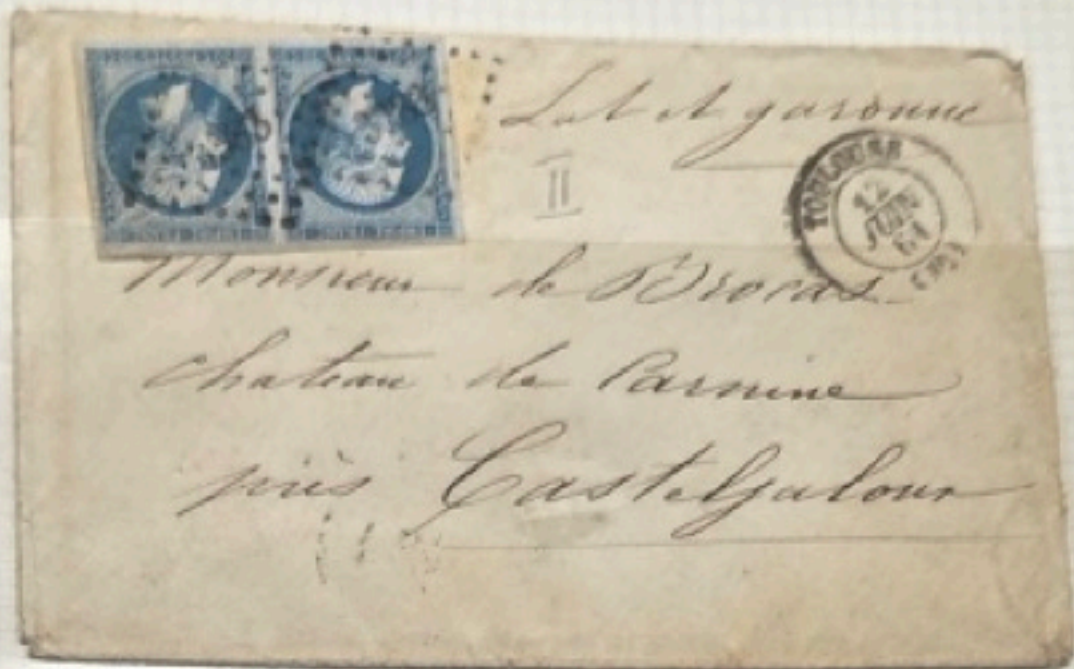 Lot et garonne
TOULOUSE
12
JUIN
61
II
Monsieur de Brocas
chateau de
près Casteljaloux